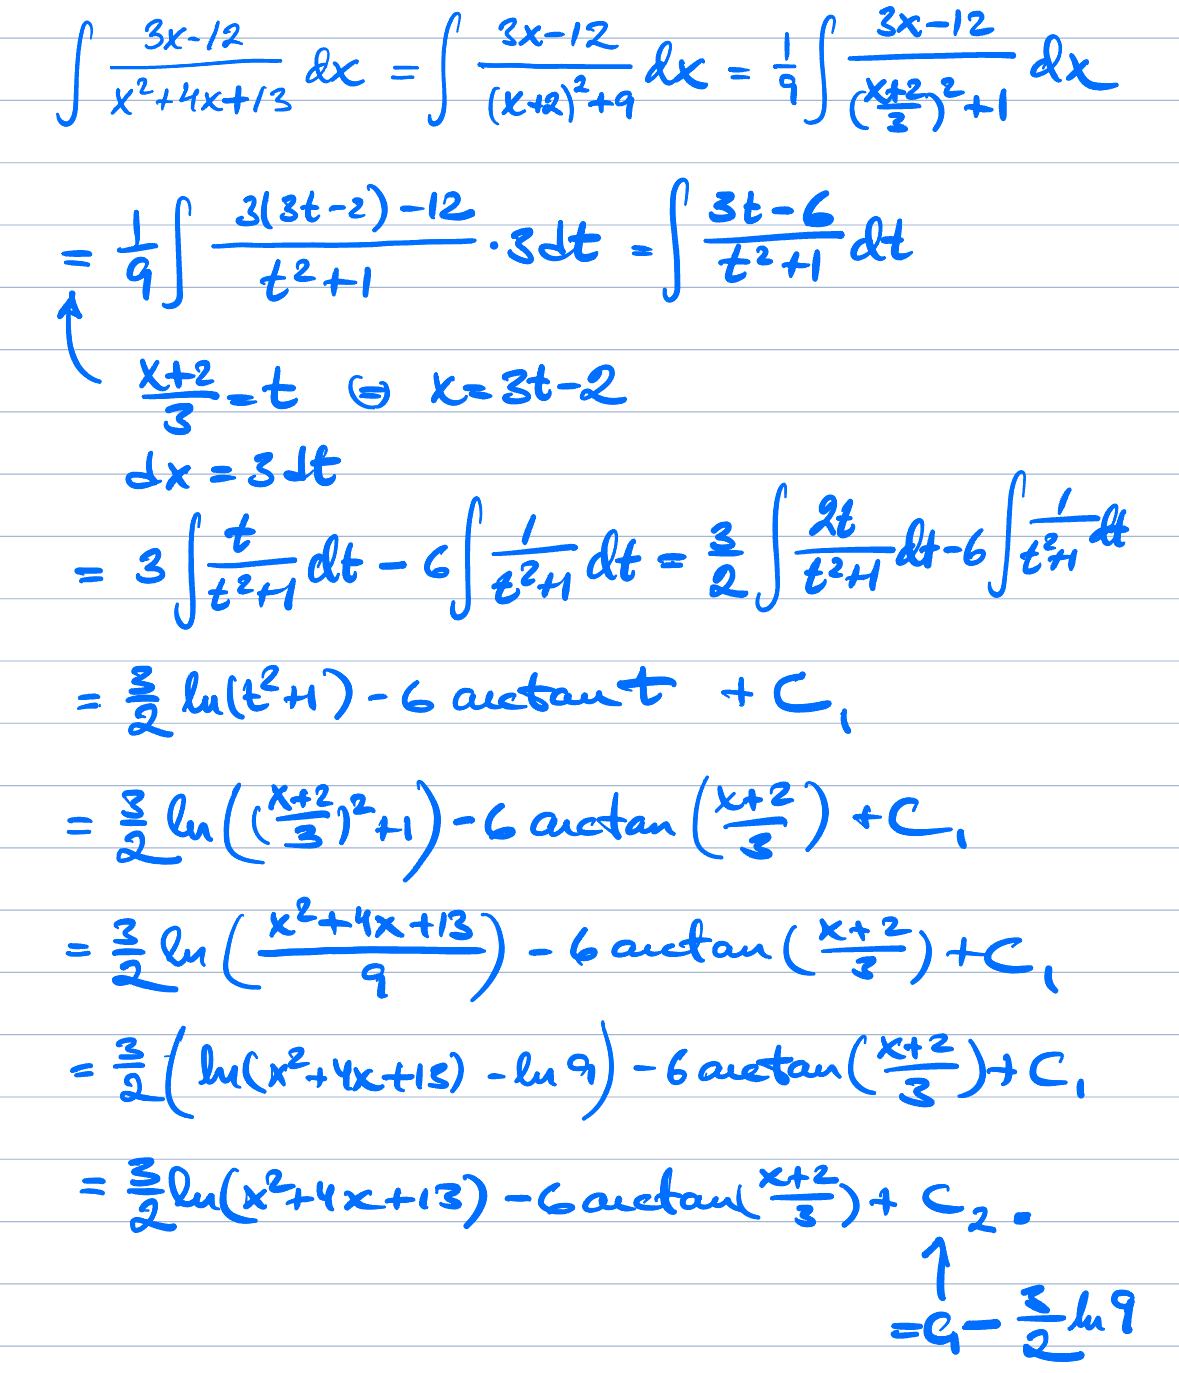 ∫ (3x-12)/(x²+4x+13) dx = ∫ (3x-12)/((x+2)²+9) dx = 1/9 ∫ (3x-12)/(((x+2)/3)²+1) dx
= 1/9 ∫ (3(3t-2)-12)/(t²+1) · 3dt = ∫ (3t-6)/(t²+1) dt
(x+2)/3 = t ⇔ x = 3t-2
dx = 3dt
= 3 ∫ t/(t²+1) dt - 6 ∫ 1/(t²+1) dt = 3/2 ∫ 2t/(t²+1) dt - 6 ∫ 1/(t²+1) dt
= 3/2 ln(t²+1) - 6 arctan t + C₁
= 3/2 ln(((x+2)/3)²+1) - 6 arctan((x+2)/3) + C₁
= 3/2 ln((x²+4x+13)/9) - 6 arctan((x+2)/3) + C₁
= 3/2 (ln(x²+4x+13) - ln 9) - 6 arctan((x+2)/3) + C₁
= 3/2 ln(x²+4x+13) - 6 arctan((x+2)/3) + C₂.
↑
= C₁ - 3/2 ln 9